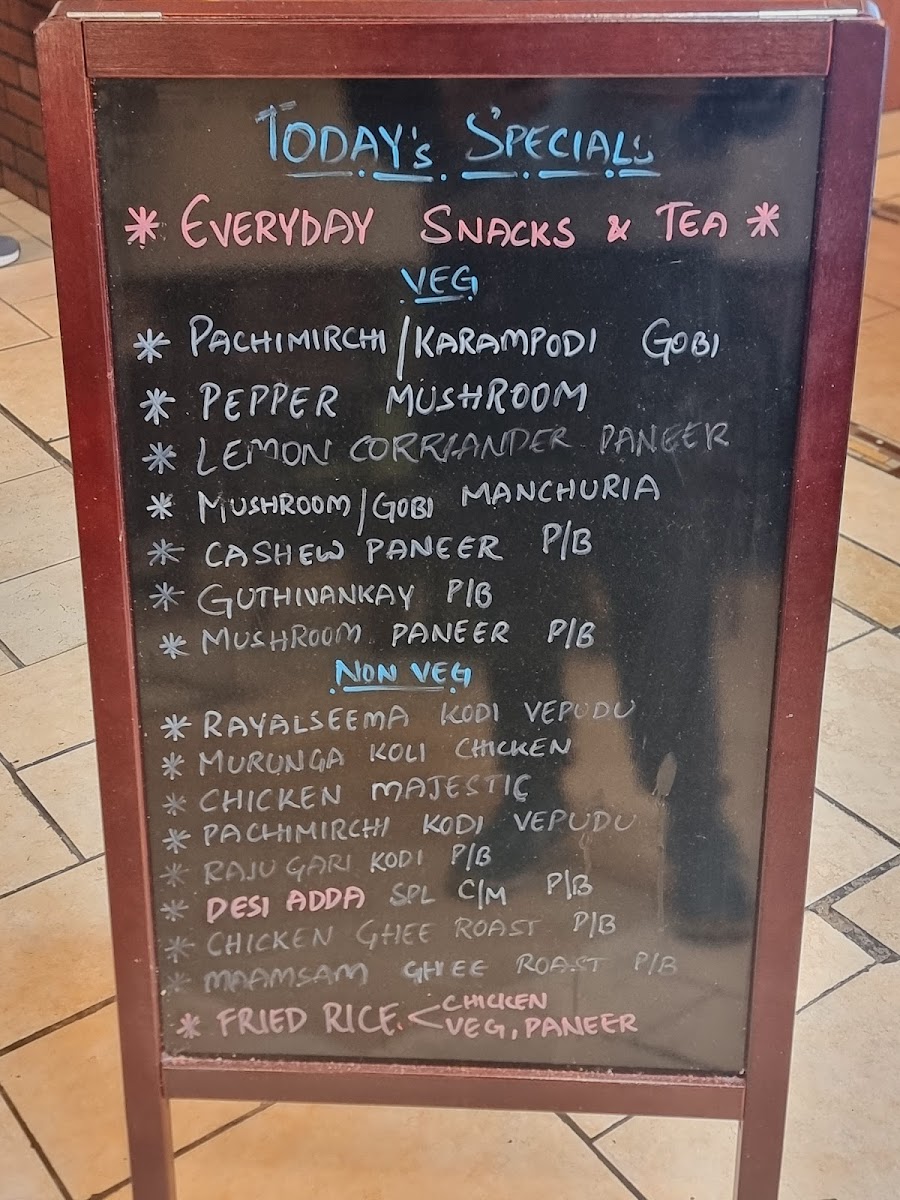 TODAY's SPECIALS
* EVERYDAY SNACKS & TEA *
VEG
* PACHIMIRCHI/KARAMPODI GOBI
* PEPPER MUSHROOM
* LEMON CORRIANDER PANEER
* MUSHROOM/GOBI MANCHURIA
* CASHEW PANEER P/B
* GUTHIVANKAY P/B
* MUSHROOM PANEER P/B
NON VEG
* RAYALSEEMA KODI VEPUDU
* MURUNGA KOLI CHICKEN
* CHICKEN MAJESTIC
* PACHIMIRCHI KODI VEPUDU
* RAJU GARI KODI P/B
* DESI ADDA SPL C/M P/B
* CHICKEN GHEE ROAST P/B
* MAAMSAM GHEE ROAST P/B
* FRIED RICE. < CHICKEN
VEG, PANEER